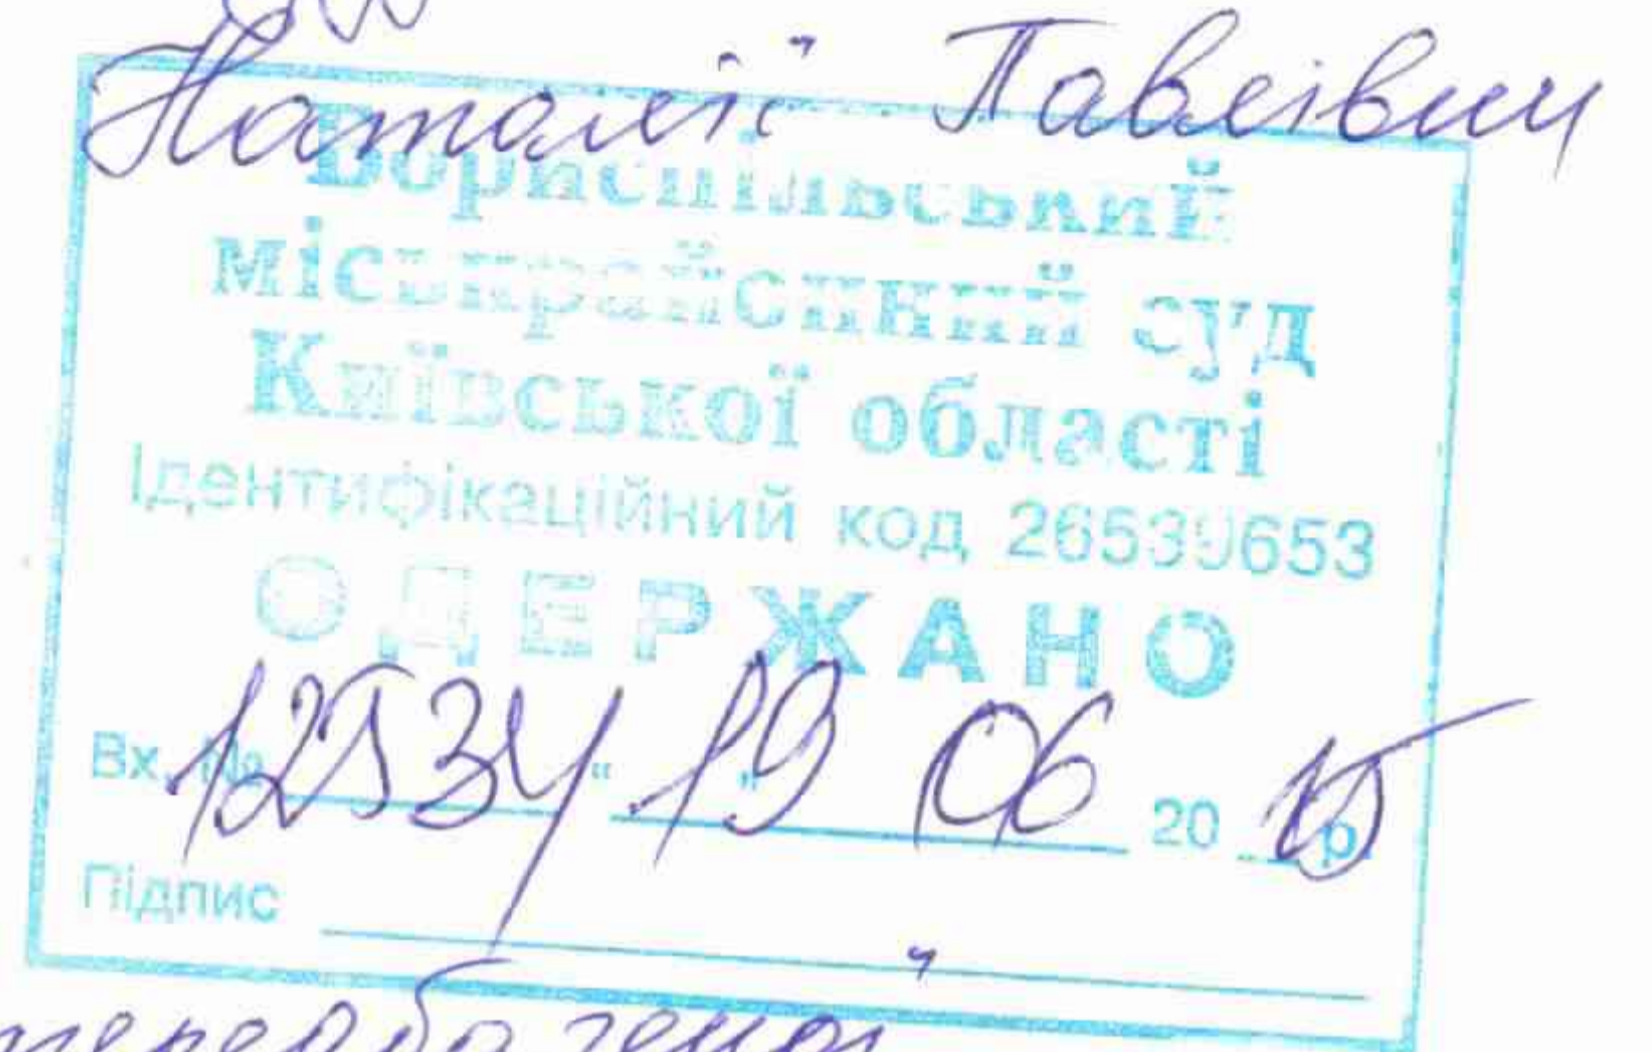 Наталії Павлівни
Бориспільський
міськрайонний суд
Київської області
Ідентифікаційний код 26539653
ОДЕРЖАНО
Вх. № 12534 "19" 06 2015 р.
Підпис